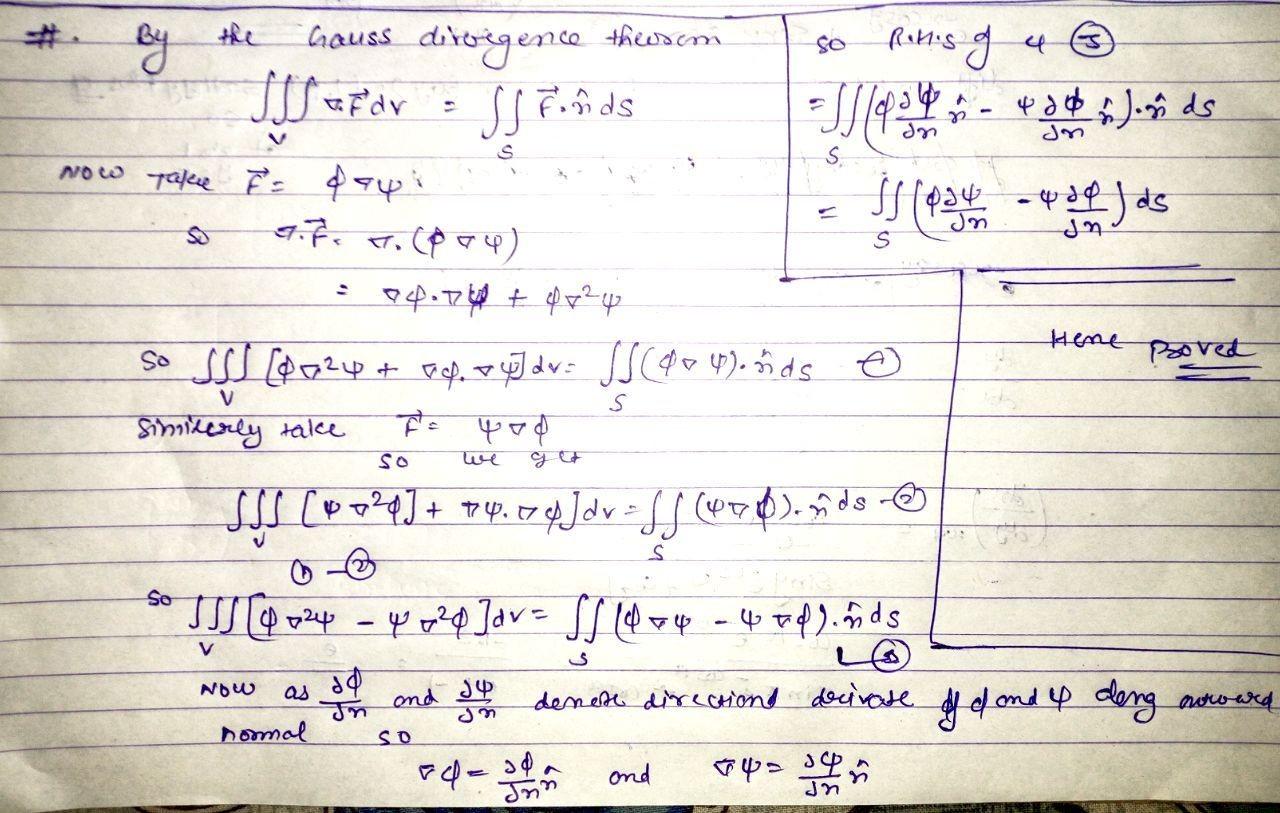 #. By the Gauss divergence theorem
∭_V ∇.F⃗ dv = ∬_S F⃗.n̂ ds
Now Take F⃗ = φ∇ψ
so ∇.F⃗ = ∇.(φ∇ψ)
= ∇φ.∇ψ + φ∇²ψ
so ∭_V [φ∇²ψ + ∇φ.∇ψ] dv = ∬_S (φ∇ψ).n̂ ds —①
Similerly take F⃗ = ψ∇φ
so we get
∭_V [ψ∇²φ] + ∇ψ.∇φ] dv = ∬_S (ψ∇φ).n̂ ds —②
① – ②
so ∭_V [φ∇²ψ – ψ∇²φ] dv = ∬_S (φ∇ψ – ψ∇φ).n̂ ds
—③
Now as ∂φ/∂n and ∂ψ/∂n denote directional derivate of φ and ψ along outward
normal so
∇φ = ∂φ/∂n n̂ and ∇ψ = ∂ψ/∂n n̂
so R.H.S of ③
= ∬_S (φ ∂ψ/∂n n̂ – ψ ∂φ/∂n n̂).n̂ ds
= ∬_S (φ ∂ψ/∂n – ψ ∂φ/∂n) ds
Hene Proved